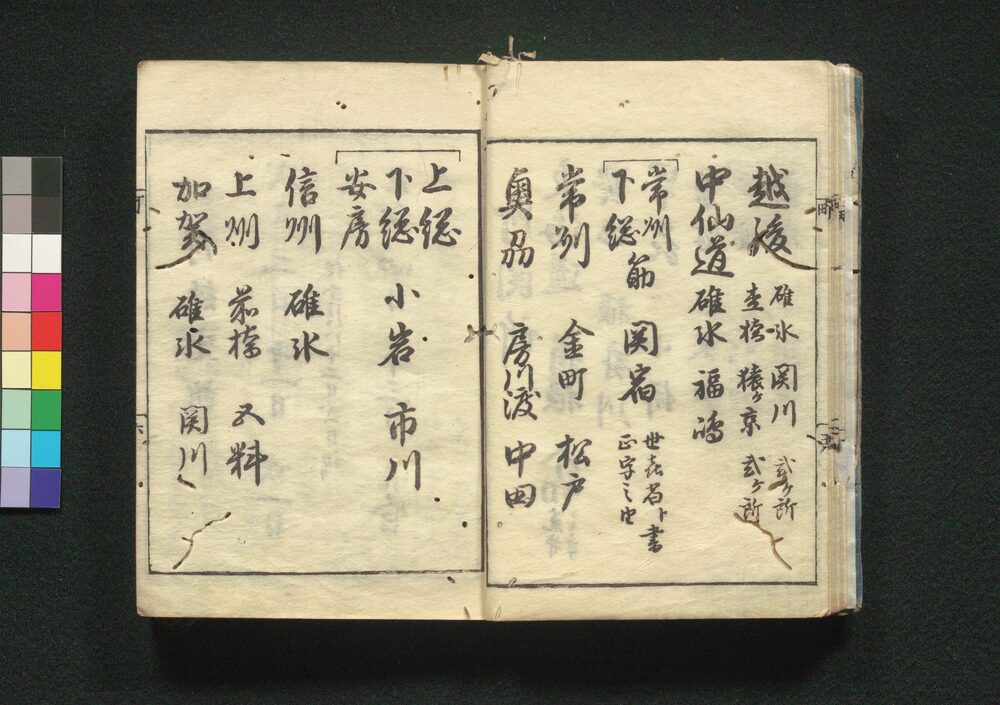 越後 碓氷 関川 弐ケ所
杢橋 猿ケ京 弐ケ所
中仙道 碓氷 福嶋
常州
下総 筋 関宿 世㐂宿ト書
正字之由
常州 金町 松戸
奥州 房川渡 中田
上総
下総 小岩 市川
安房
信州 碓氷
上州 杢橋 五料
加賀 碓氷 関川